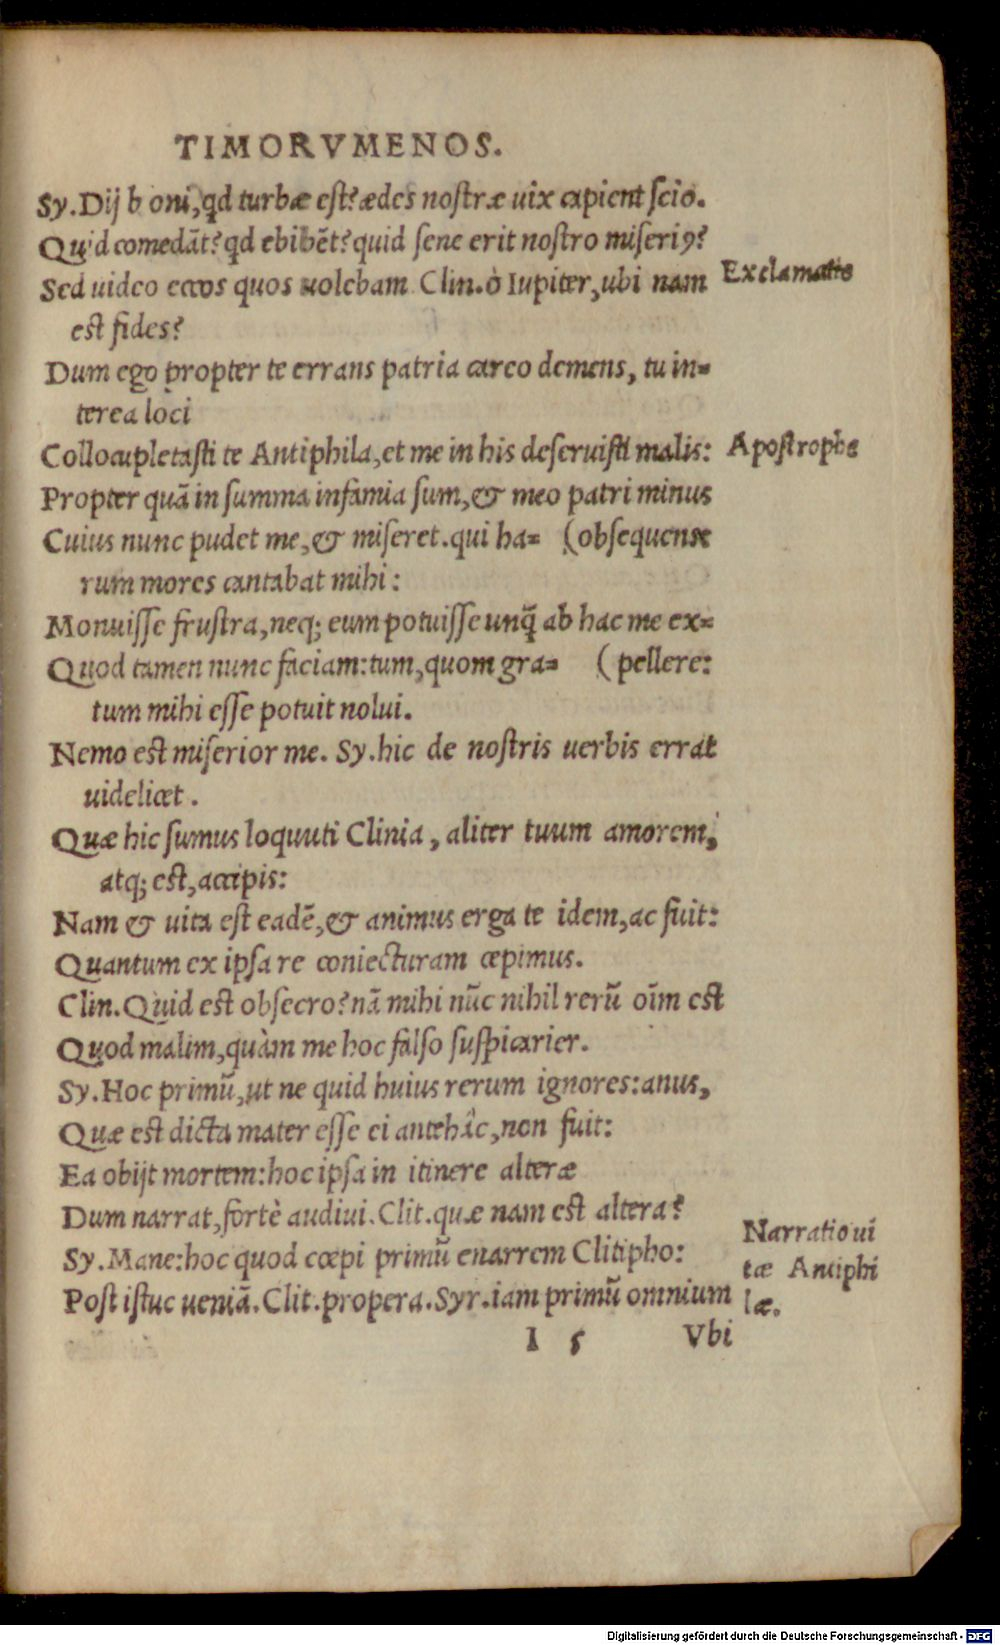 TIMORVMENOS.
Sy. Dij boni, qd turbæ est? ædes nostræ uix capient scio.
Quid comedāt? qd ebibēt? quid sene erit nostro miseriꝰ?
Sed uideo eccos quos uolebam Clin. ò Iupiter, ubi nam
est fides?
Exclamatio
Dum ego propter te errans patria careo demens, tu in=
terea loci
Collocupletasti te Antiphila, et me in his deseruisti malis:
Apostrophe
Propter quā in summa infamia sum, & meo patri minus
Cuius nunc pudet me, & miseret. qui ha= (obsequens
rum mores cantabat mihi:
Monuisse frustra, neq; eum potuisse unq̃ ab hac me ex=
Quod tamen nunc faciam: tum, quom gra= (pellere:
tum mihi esse potuit nolui.
Nemo est miserior me. Sy. hic de nostris uerbis errat
uidelicet.
Quæ hic sumus loquuti Clinia, aliter tuum amorem,
atq; est, accipis:
Nam & uita est eadē, & animus erga te idem, ac fuit:
Quantum ex ipsa re coniecturam cœpimus.
Clin. Quid est obsecro? nā mihi nūc nihil rerū oīm est
Quod malim, quàm me hoc falso suspicarier.
Sy. Hoc primū, ut ne quid huius rerum ignores: anus,
Quæ est dicta mater esse ei antehâc, non fuit:
Ea obijt mortem: hoc ipsa in itinere alteræ
Dum narrat, fortè audiui. Clit. quæ nam est altera?
Sy. Mane: hoc quod cœpi primū enarrem Clitipho:
Post istuc ueniā. Clit. propera. Syr. iam primū omnium
Narratio ui
tæ Antiphi
læ.
I 5 Vbi
Digitalisierung gefördert durch die Deutsche Forschungsgemeinschaft - DFG